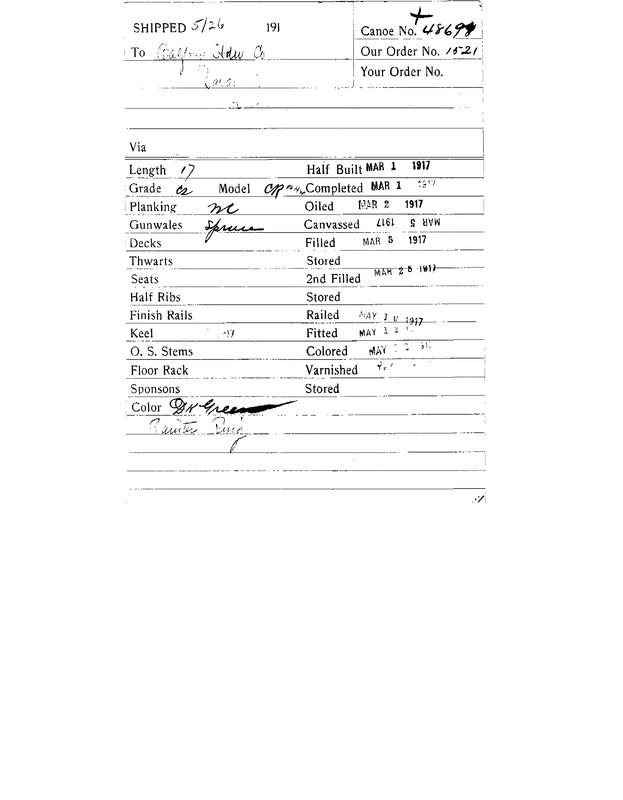 SHIPPED 5/26 191
Canoe No. 48699
To Hdw Co
Our Order No. 1521
Your Order No.
Via
Length 17 Half Built MAR 1 1917
Grade Model Completed MAR 1 1917
Planking WC Oiled MAR 2 1917
Gunwales Spruce Canvassed MAR 5 1917
Decks Filled MAR 5 1917
Thwarts Stored
Seats 2nd Filled MAR 26 1917
Half Ribs Stored
Finish Rails Railed MAY 1 1917
Keel Fitted MAY 12
O. S. Stems Colored MAY
Floor Rack Varnished
Sponsons Stored
Color Dk Green
Painter Ring